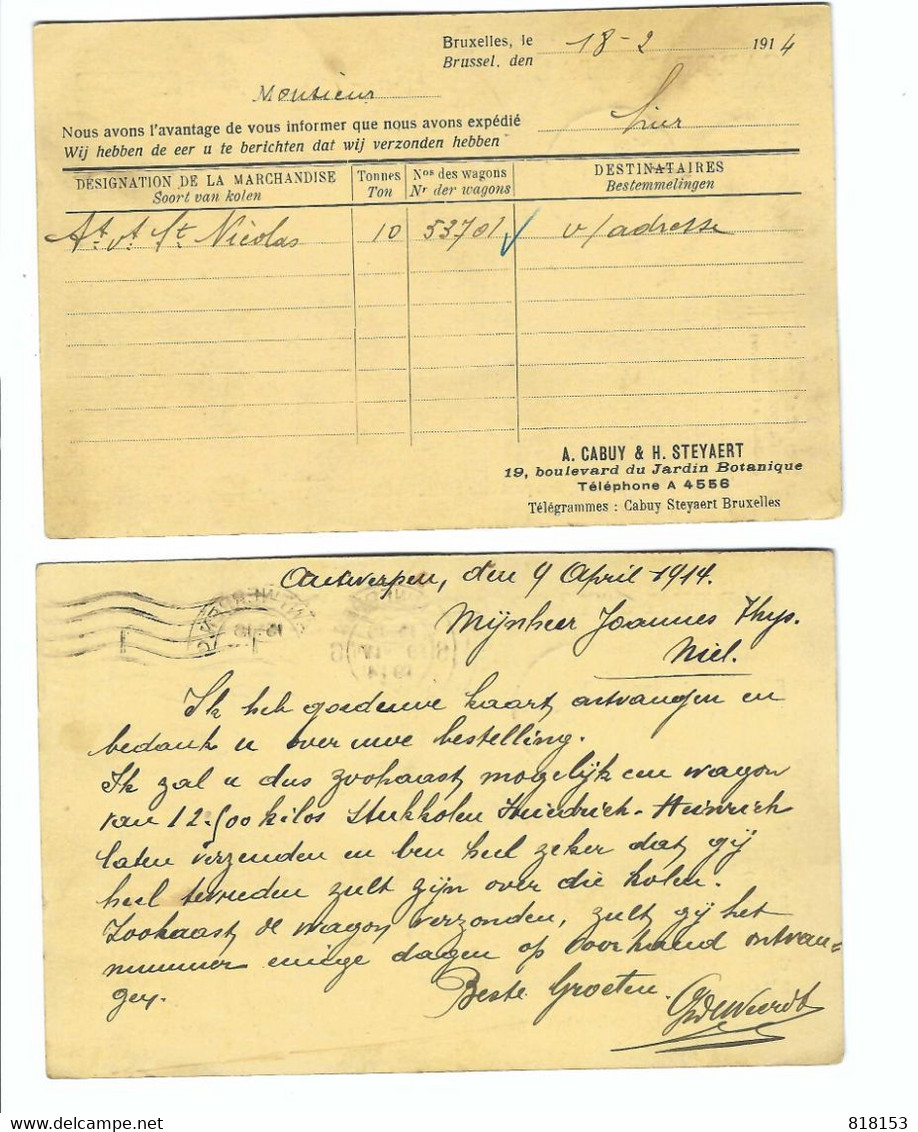 Bruxelles, le
Brussel, den 18-2 1914
Monsieur
Nous avons l'avantage de vous informer que nous avons expédié hier
Wij hebben de eer u te berichten dat wij verzonden hebben
DÉSIGNATION DE LA MARCHANDISE Tonnes Nos des wagons DESTINATAIRES
Soort van kolen Ton Nr der wagons Bestemmelingen
At. vt. St. Nicolas 10 53701 v/adresse
A. CABUY & H. STEYAERT
19, boulevard du Jardin Botanique
Téléphone A 4556
Télégrammes : Cabuy Steyaert Bruxelles
Antwerpen, den 9 April 1914.
Mijnheer Joannes Thys.
Niel.
Ik heb goed uwe kaart ontvangen en
bedank u over uwe bestelling.
Ik zal u dus zoohaast mogelijk een wagon
van 12.500 kilos Stukkolen Friedrich-Heinrich
laten verzenden en ben heel zeker dat gij
heel tevreden zult zijn over die kolen.
Zoohaast de wagon verzonden, zult gij het
nummer eenige dagen op voorhand ontvan=
gen.
Beste Groeten.
818153